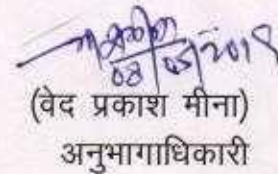 08/05/2019
(वेद प्रकाश मीना)
अनुभागाधिकारी